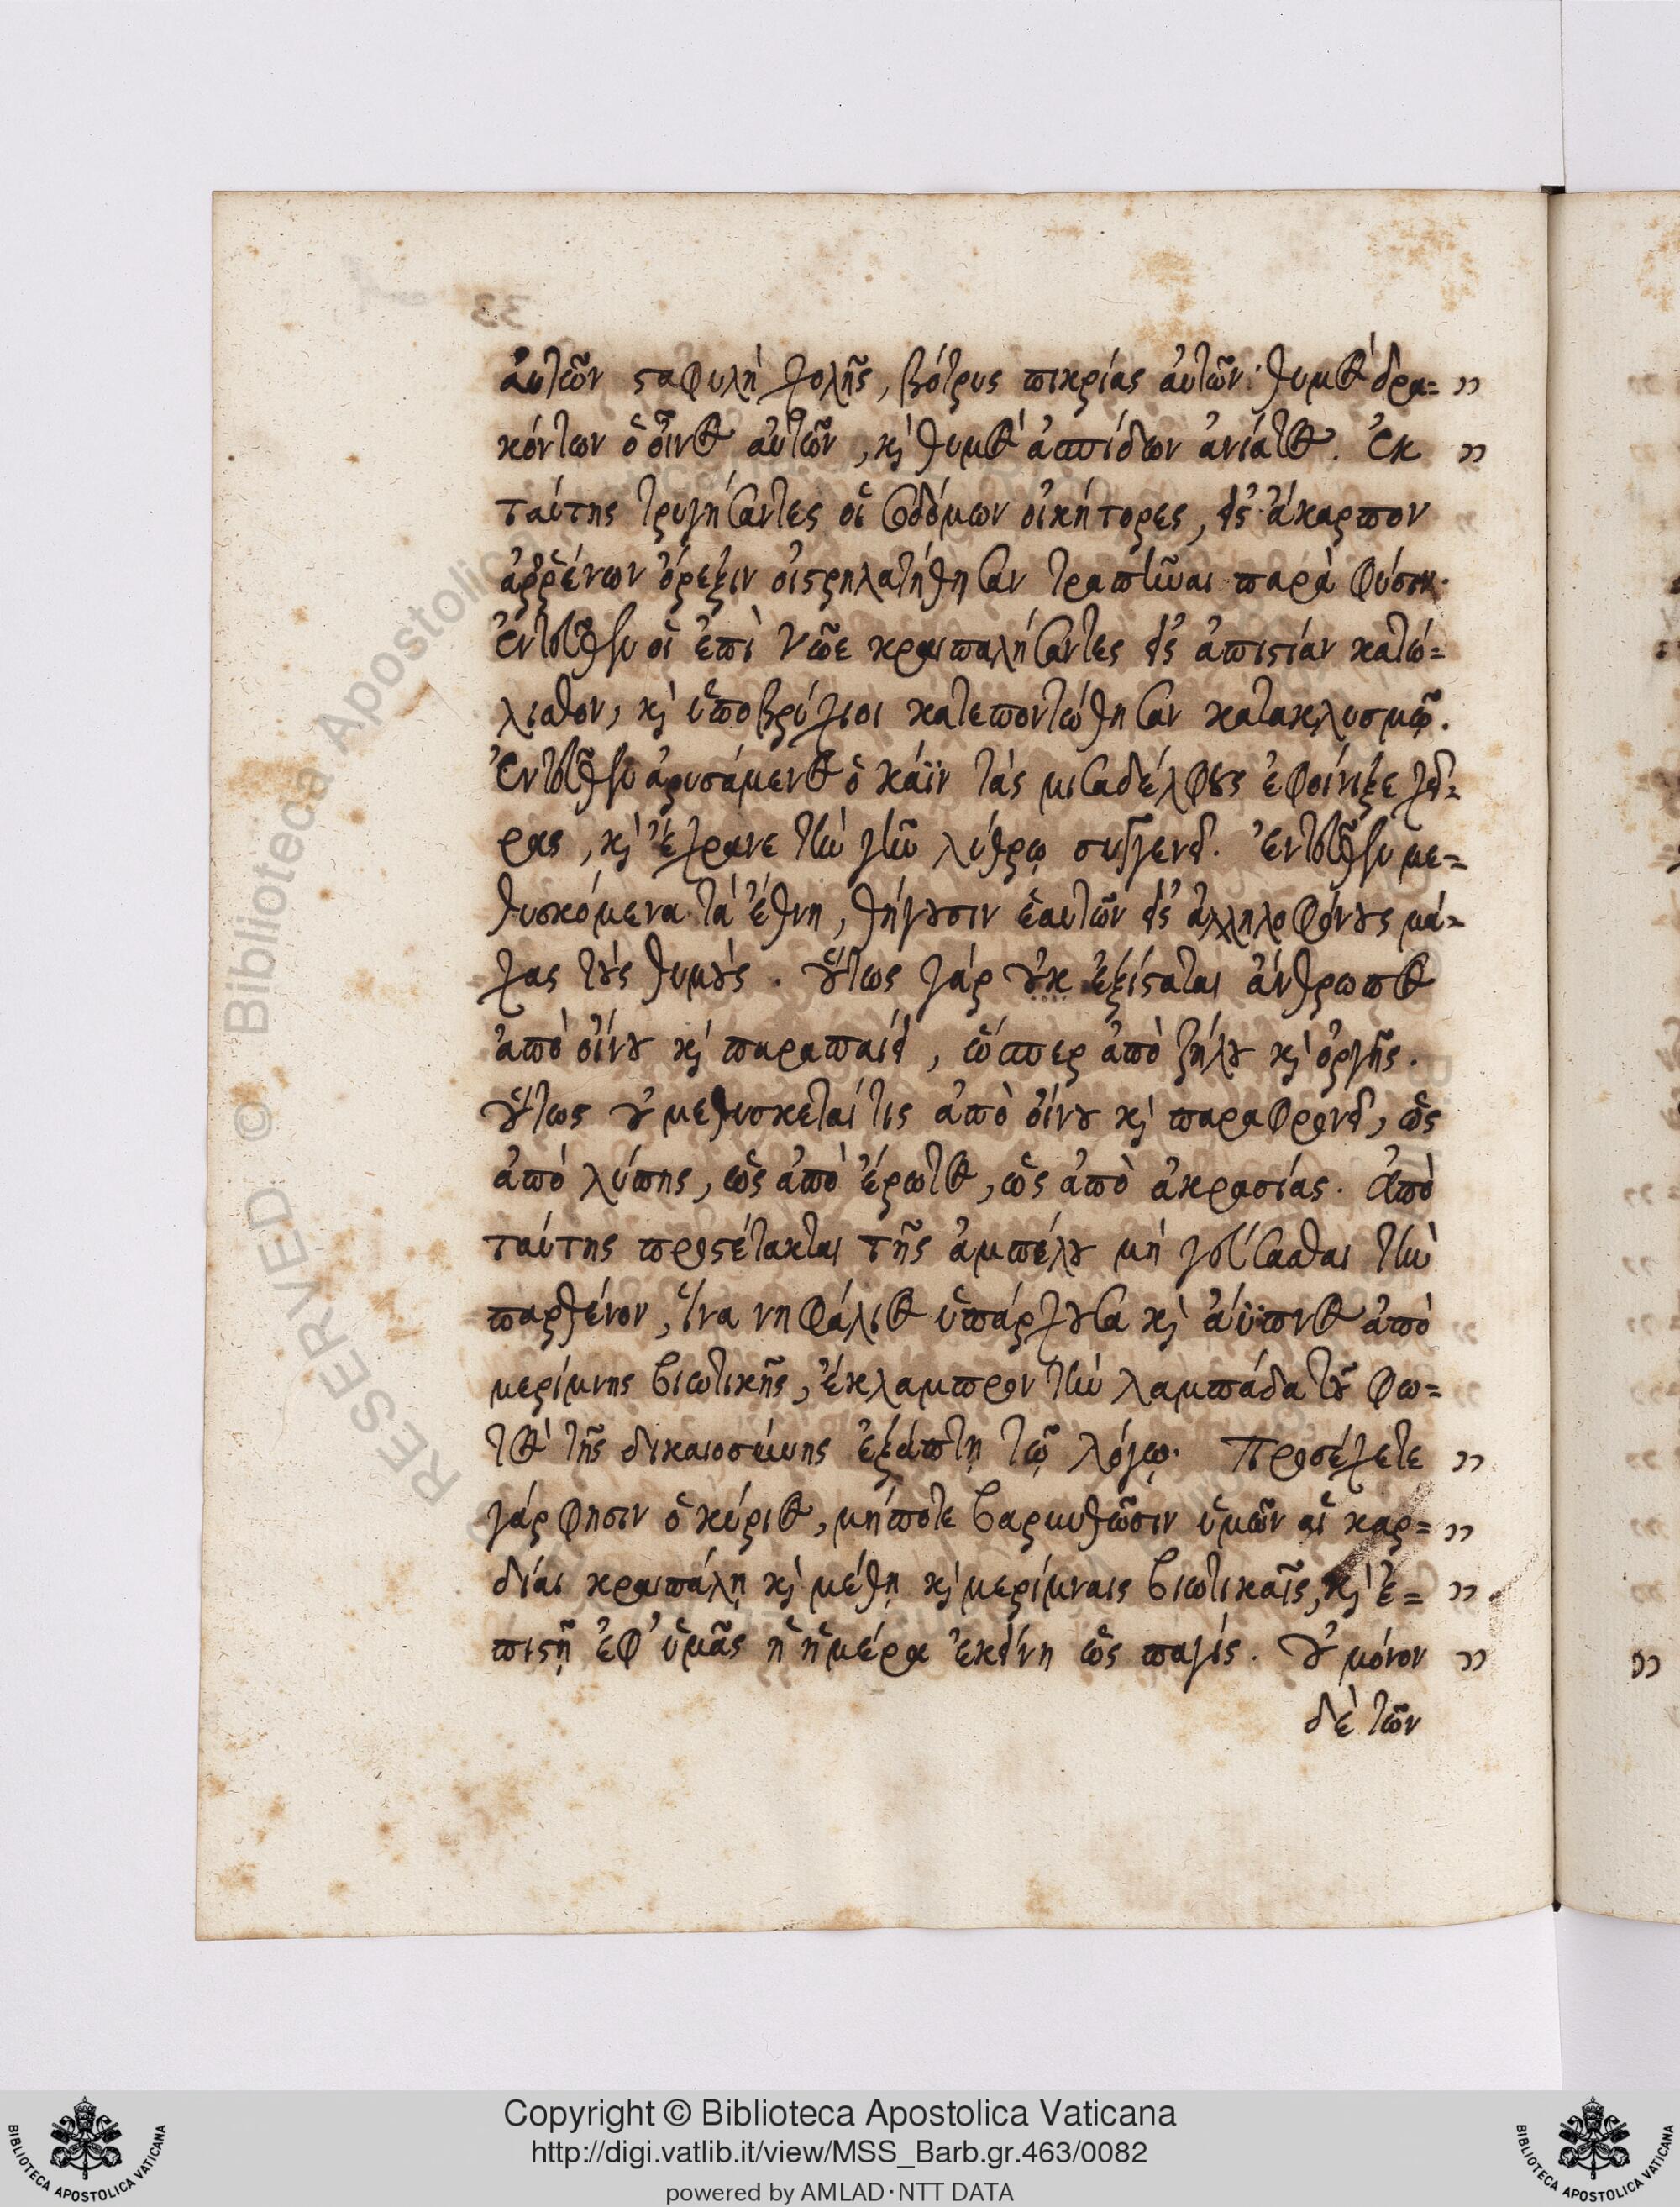 αὐτῶν σταφυλὴ χολῆς, βότρυς πικρίας αὐτῶν· θυμὸς δρα= »
κόντων ὁ οἶνος αὐτῶν, κὶ θυμὸς ἀσπίδων ἀνίατος. Ἐκ »
ταύτης τρυγήσαντες οἱ Σοδόμων οἰκήτορες, εἰς ἄκαρπον
ἀῤῥένων ὄρεξιν οἰστρηλατήθησαν τραπῆναι παρὰ φύσιν.
ἐντεῦθεν οἱ ἐπὶ Νῶε κραιπαλήσαντες εἰς ἀπιστίαν κατώ=
λισθον, κὶ ὑποβρύχιοι κατεποντώθησαν κατακλυσμῷ.
Ἐντεῦθεν ἀρυσάμενος ὁ Κάϊν τὰς μισαδέλφους ἐφοίνιξε χεῖ=
ρας, κὶ ἔχρανε τὴν γῆν λύθρῳ συγγενεῖ. Ἐντεῦθεν με=
θυσκόμενα τὰ ἔθνη, θήγουσιν ἑαυτῶν εἰς ἀλληλοφόνους μά=
χας τοὺς θυμούς. οὕτως γὰρ οὐκ ἐξίσταται ἄνθρωπος
ἀπὸ οἴνου κὶ παραπαίει, ὥσπερ ἀπὸ ζήλου κὶ ὀργῆς.
οὕτως οὐ μεθυσκεταί τις ἀπὸ οἴνου κὶ παραφρονεῖ, ὡς
ἀπὸ λύπης, ὡς ἀπὸ ἔρωτος, ὡς ἀπὸ ἀκρασίας. ἀπὸ
ταύτης προστέτακται τῆς ἀμπέλου μὴ γεύσασθαι τὴν
παρθένον, ἵνα νηφάλιος ὑπάρχουσα κὶ ἄϋπνος ἀπὸ
μερίμνης βιωτικῆς, ἔκλαμπρον τὴν λαμπάδα τοῦ φω=
τὸς τῆς δικαιοσύνης ἐξάπτῃ τῷ λόγῳ. Προσέχετε »
γάρ φησιν ὁ κύριος, μήποτε βαρυνθῶσιν ὑμῶν αἱ καρ= »
δίαι κραιπάλῃ κὶ μέθῃ κὶ μερίμναις βιωτικαῖς, κὶ ἐ= »
πιστῇ ἐφ' ὑμᾶς ἡ ἡμέρα ἐκείνη ὡς παγίς. οὐ μόνον »
δὲ τῶν
RESERVED © Biblioteca Apostolica
Copyright © Biblioteca Apostolica Vaticana
http://digi.vatlib.it/view/MSS_Barb.gr.463/0082
powered by AMLAD·NTT DATA
BIBLIOTECA APOSTOLICA VATICANA
BIBLIOTECA APOSTOLICA VATICANA